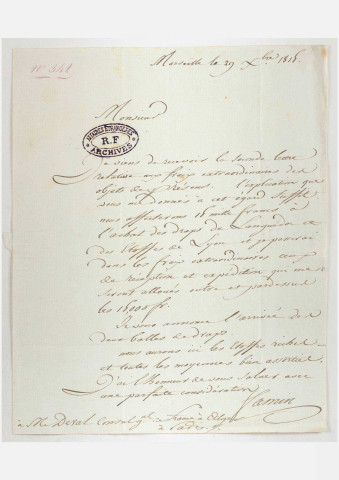 Marseille le 29 Xbre 1815
Monsieur
AFFAIRES ETRANGERES
R.F
ARCHIVES
Je viens de recevoir la seconde lettre
relative aux frais extraordinaires des
objets de présens. l'explication que
vous me donnés à cet égard suffit
nous affecterons 15 mille francs à
l'achat des draps de Languedoc et
des Etoffes de Lyon et je
dans les frais extraordinaires
de réception et expédition qui me
seront alloués outre et pardessus
les 15000 fr.
Je vous annonce l'arrivée de
deux balles de draps.
nous aurons ici les Etoffes riches
et toutes les moyennes bien assorties.
J'ai l'honneur de vous saluer avec
une parfaite considération
à Mr Deval Consul gal de France à Alger